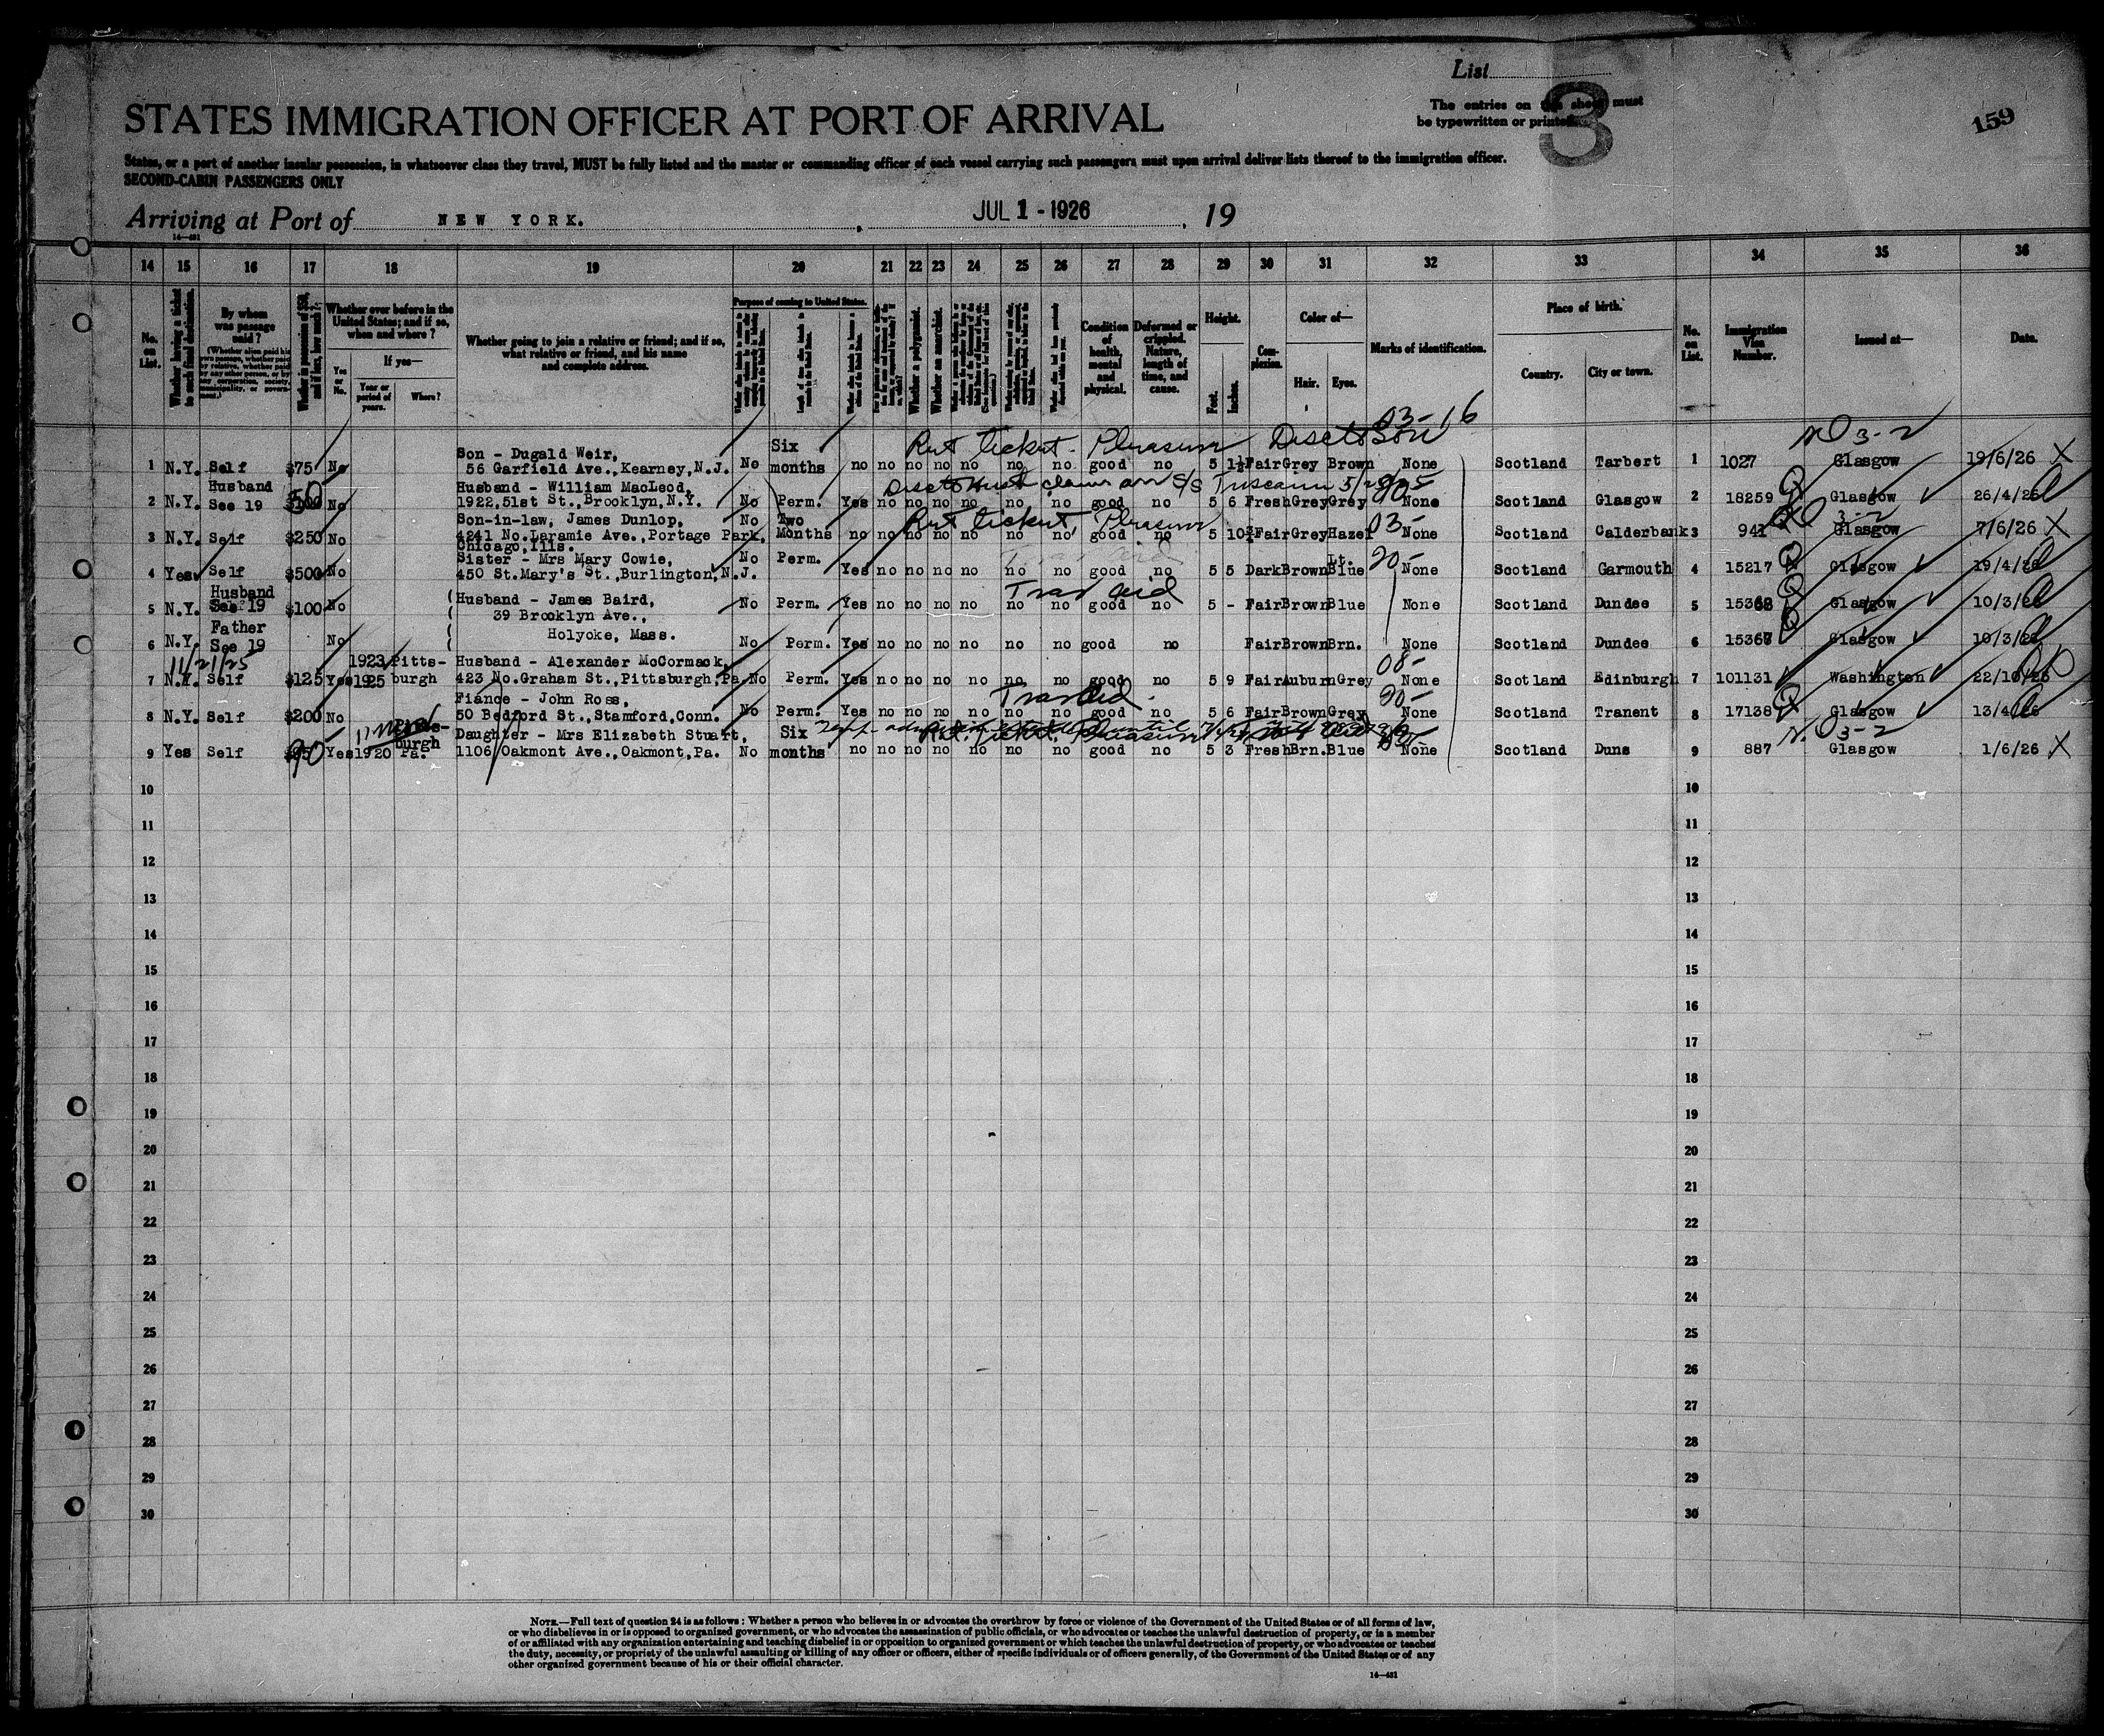 List
3
159
STATES IMMIGRATION OFFICER AT PORT OF ARRIVAL
The entries on this sheet must
be typewritten or printed.
States, or a port of another insular possession, in whatsoever class they travel, MUST be fully listed and the master or commanding officer of each vessel carrying such passengers must upon arrival deliver lists thereof to the immigration officer.
SECOND-CABIN PASSENGERS ONLY
Arriving at Port of NEW YORK. , JUL 1 - 1926 , 19
14—481
14 15 16 17 18 19 20 21 22 23 24 25 26 27 28 29 30 31 32 33 34 35 36
No. on List.
Whether having a ticket to such final destination.
By whom was passage paid?
Whether ever before in the United States; and if so, when and where?
If yes—
Yes or No.
Year or period of years.
Where?
Whether going to join a relative or friend; and if so, what relative or friend, and his name and complete address.
Purpose of coming to United States.
Whether a polygamist.
Whether an anarchist.
Condition of health, mental and physical.
Deformed or crippled. Nature, length of time, and cause.
Height.
Feet. Inches.
Complexion.
Color of—
Hair. Eyes.
Marks of identification.
Place of birth.
Country. City or town.
No. on List.
Immigration Visa Number.
Issued at—
Date.
03-16
Ret ticket - Pleasure
NO 3-2
Son - Dugald Weir, Six
1 N.Y. Self $75 No 56 Garfield Ave., Kearney, N.J. No months no no no no no no no good no 5 1½ Fair Grey Brown None Scotland Tarbert 1 1027 Glasgow 19/6/26 X
Husband Husband - William MacLeod,
2 N.Y. See 19 $100 50 No 1922, 51st St., Brooklyn, N.Y. No Perm. Yes no no no no no no good no 5 6 Fresh Grey Grey None Scotland Glasgow 2 18259 Glasgow 26/4/26
Son-in-law, James Dunlop, No Two Ret ticket, Pleasure 03- 3-2
3 N.Y. Self $250 No 4241 No. Laramie Ave., Portage Park, Months no no no no no no no good no 5 10¾ Fair Grey Hazel None Scotland Calderbank 3 941 Glasgow 7/6/26 X
Chicago, Ills.
Sister - Mrs Mary Cowie, No Perm. Lt. 20-
4 Yes Self $500 No 450 St. Mary's St., Burlington, N.J. Yes no no no no no no good no 5 5 Dark Brown Blue None Scotland Garmouth 4 15217 Glasgow 19/4/26
Husband Trav aid
5 N.Y. See 19 $100 No Husband - James Baird, No Perm. Yes no no no no no no good no 5 - Fair Brown Blue None Scotland Dundee 5 15368 Glasgow 10/3/26
39 Brooklyn Ave.,
Father Holyoke, Mass.
6 N.Y. See 19 No No Perm. Yes no no no no no no good no Fair Brown Brn. None Scotland Dundee 6 15367 Glasgow 10/3/26
11/21/25 1923 Pitts- Husband - Alexander McCormack, 08-
7 N.Y. Self $125 Yes 1925 burgh 423 No. Graham St., Pittsburgh, Pa. No Perm. Yes no no no no no no good no 5 9 Fair Auburn Grey None Scotland Edinburgh 7 101131 Washington 22/10/25
Fiance - John Ross, Trav aid 20-
8 N.Y. Self $200 No 50 Bedford St., Stamford, Conn. No Perm. Yes no no no no no no good no 5 6 Fair Brown Grey None Scotland Tranent 8 17138 Glasgow 13/4/26
burgh Daughter - Mrs Elizabeth Stuart, Six Ret. ticket. Pleasure NO 3-2
9 Yes Self 90 Yes 1920 Pa. 1106 Oakmont Ave., Oakmont, Pa. No months no no no no no no no good no 5 3 Fresh Brn. Blue None Scotland Duns 9 887 Glasgow 1/6/26 X
10 10
11 11
12 12
13 13
14 14
15 15
16 16
17 17
18 18
19 19
20 20
21 21
22 22
23 23
24 24
25 25
26 26
27 27
28 28
29 29
30 30
NOTE.—Full text of question 24 is as follows: Whether a person who believes in or advocates the overthrow by force or violence of the Government of the United States or of all forms of law,
or who disbelieves in or is opposed to organized government, or who advocates the assassination of public officials, or who advocates or teaches the unlawful destruction of property, or is a member
of or affiliated with any organization entertaining and teaching disbelief in or opposition to organized government or which teaches the unlawful destruction of property, or who advocates or teaches
the duty, necessity, or propriety of the unlawful assaulting or killing of any officer or officers, either of specific individuals or of officers generally, of the Government of the United States or of any
other organized government because of his or their official character.
14—481